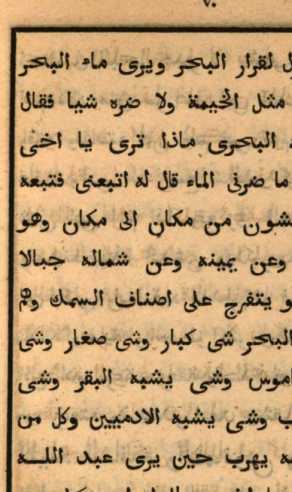 ٧٠
ل لقرار البحر ويرى ماء البحر
مثل الخيمة ولا ضره شيا فقال
البحرى ماذا ترى يا اخى
ما ضرنى الماء قال له اتبعنى فتبعه
يمشون من مكان الى مكان وهو
وعن يمينه وعن شماله جبالا
و يتفرج على اصناف السمك وهم
البحر شى كبار وشى صغار وشى
اموس وشى يشبه البقر وشى
ب وشى يشبه الادميين وكل من
ه يهرب حين يرى عبد اللـه